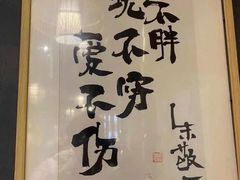 不胖
玩不穷
爱不伤
朱敬